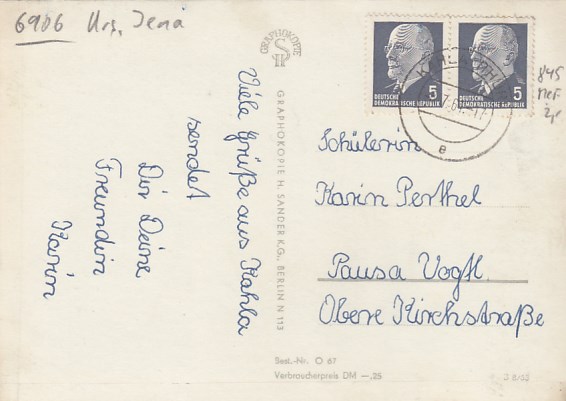 6906 Urs, Jena
GRAPHOKOPIE
Viele Grüße aus Kahla
sendet
Dir Deine
Freundin
Karin
GRAPHOKOPIE H. SANDER K.G., BERLIN N 113
5
DEUTSCHE
DEMOKRATISCHE REPUBLIK
5
DEUTSCHE
DEMOKRATISCHE REPUBLIK
e
845
Schülerin
Karin Perthel
Pausa Vogtl.
Obere Kirchstraße
Best.-Nr. O 67
Verbraucherpreis DM —,25